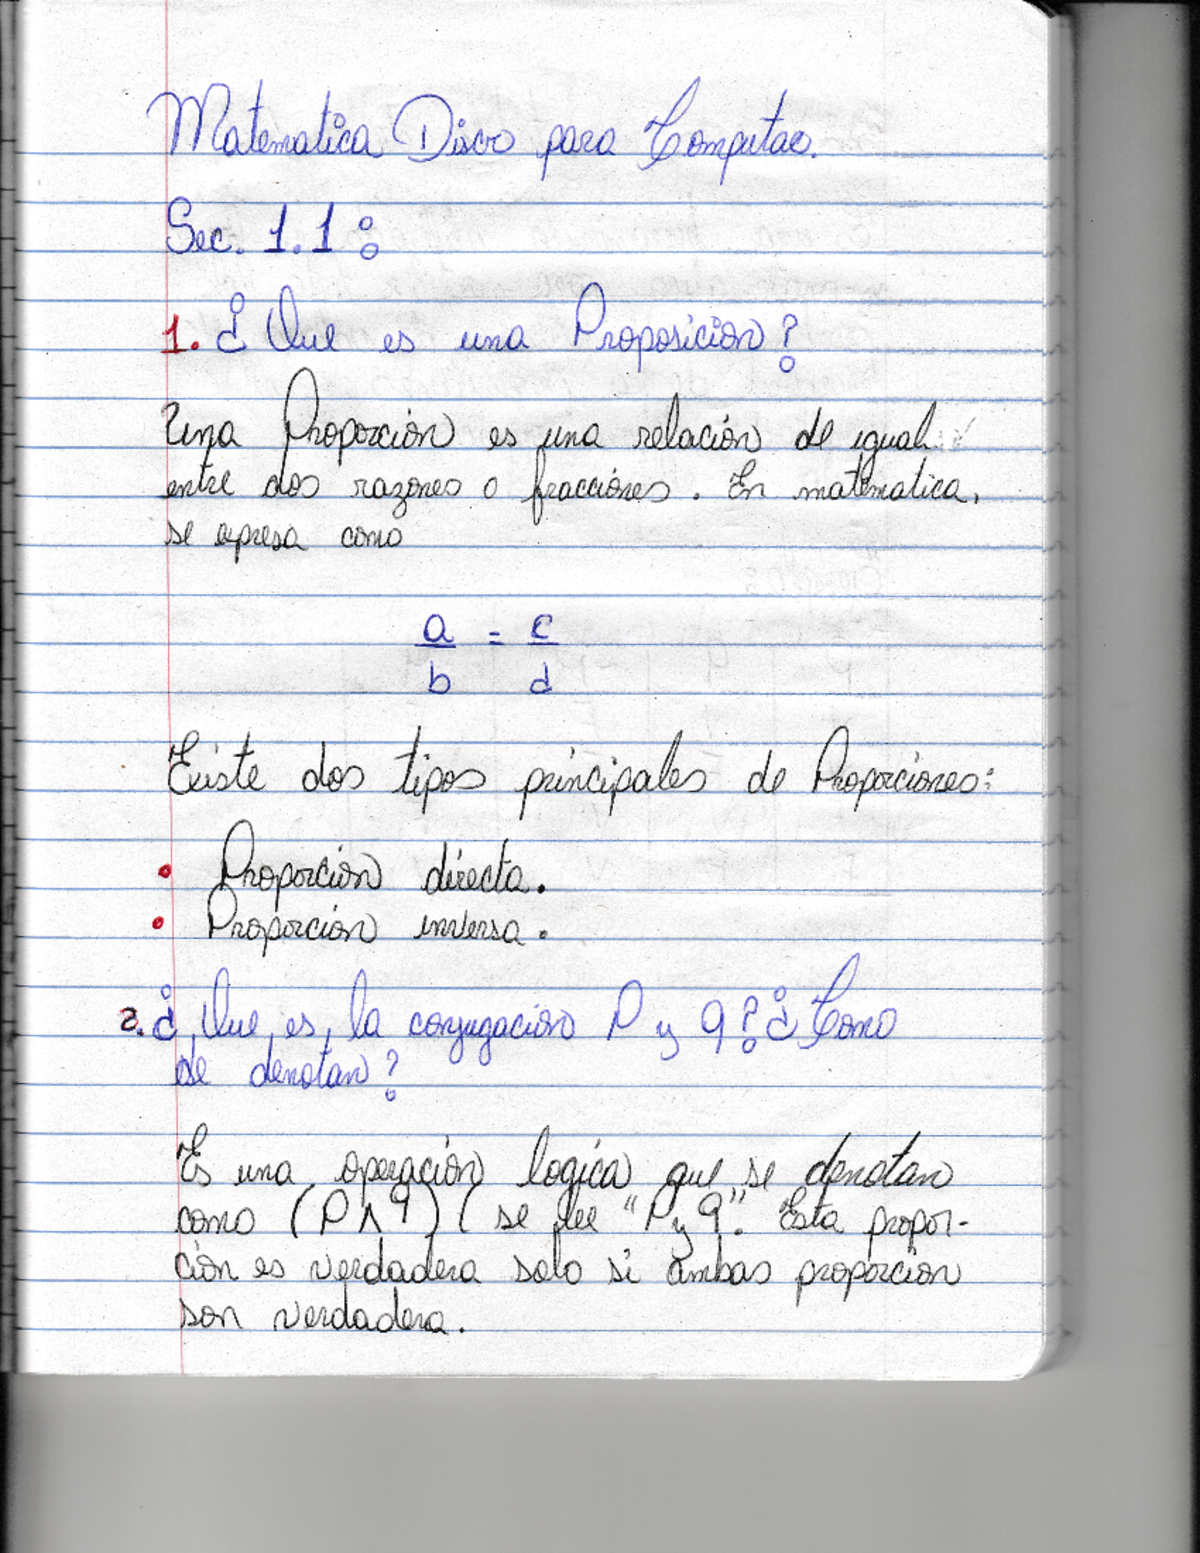 Matematica Disc para Computac.
Sec. 1.1:
1. ¿Que es una Proposición?
Una Proporción es una relación de igual
entre dos razones o fracciones. En matematica,
se expresa como
a/b = c/d
Existe dos tipos principales de Proporciones:
• Proporción directa.
• Proporción inversa.
2. ¿Que es la conjugación P y q? ¿Como
se denotan?
Es una operación logica que se denotan
como (P ∧ q) (se lee "P y q". Esta propor-
ción es verdadera solo si ambas proporción
son verdadera.